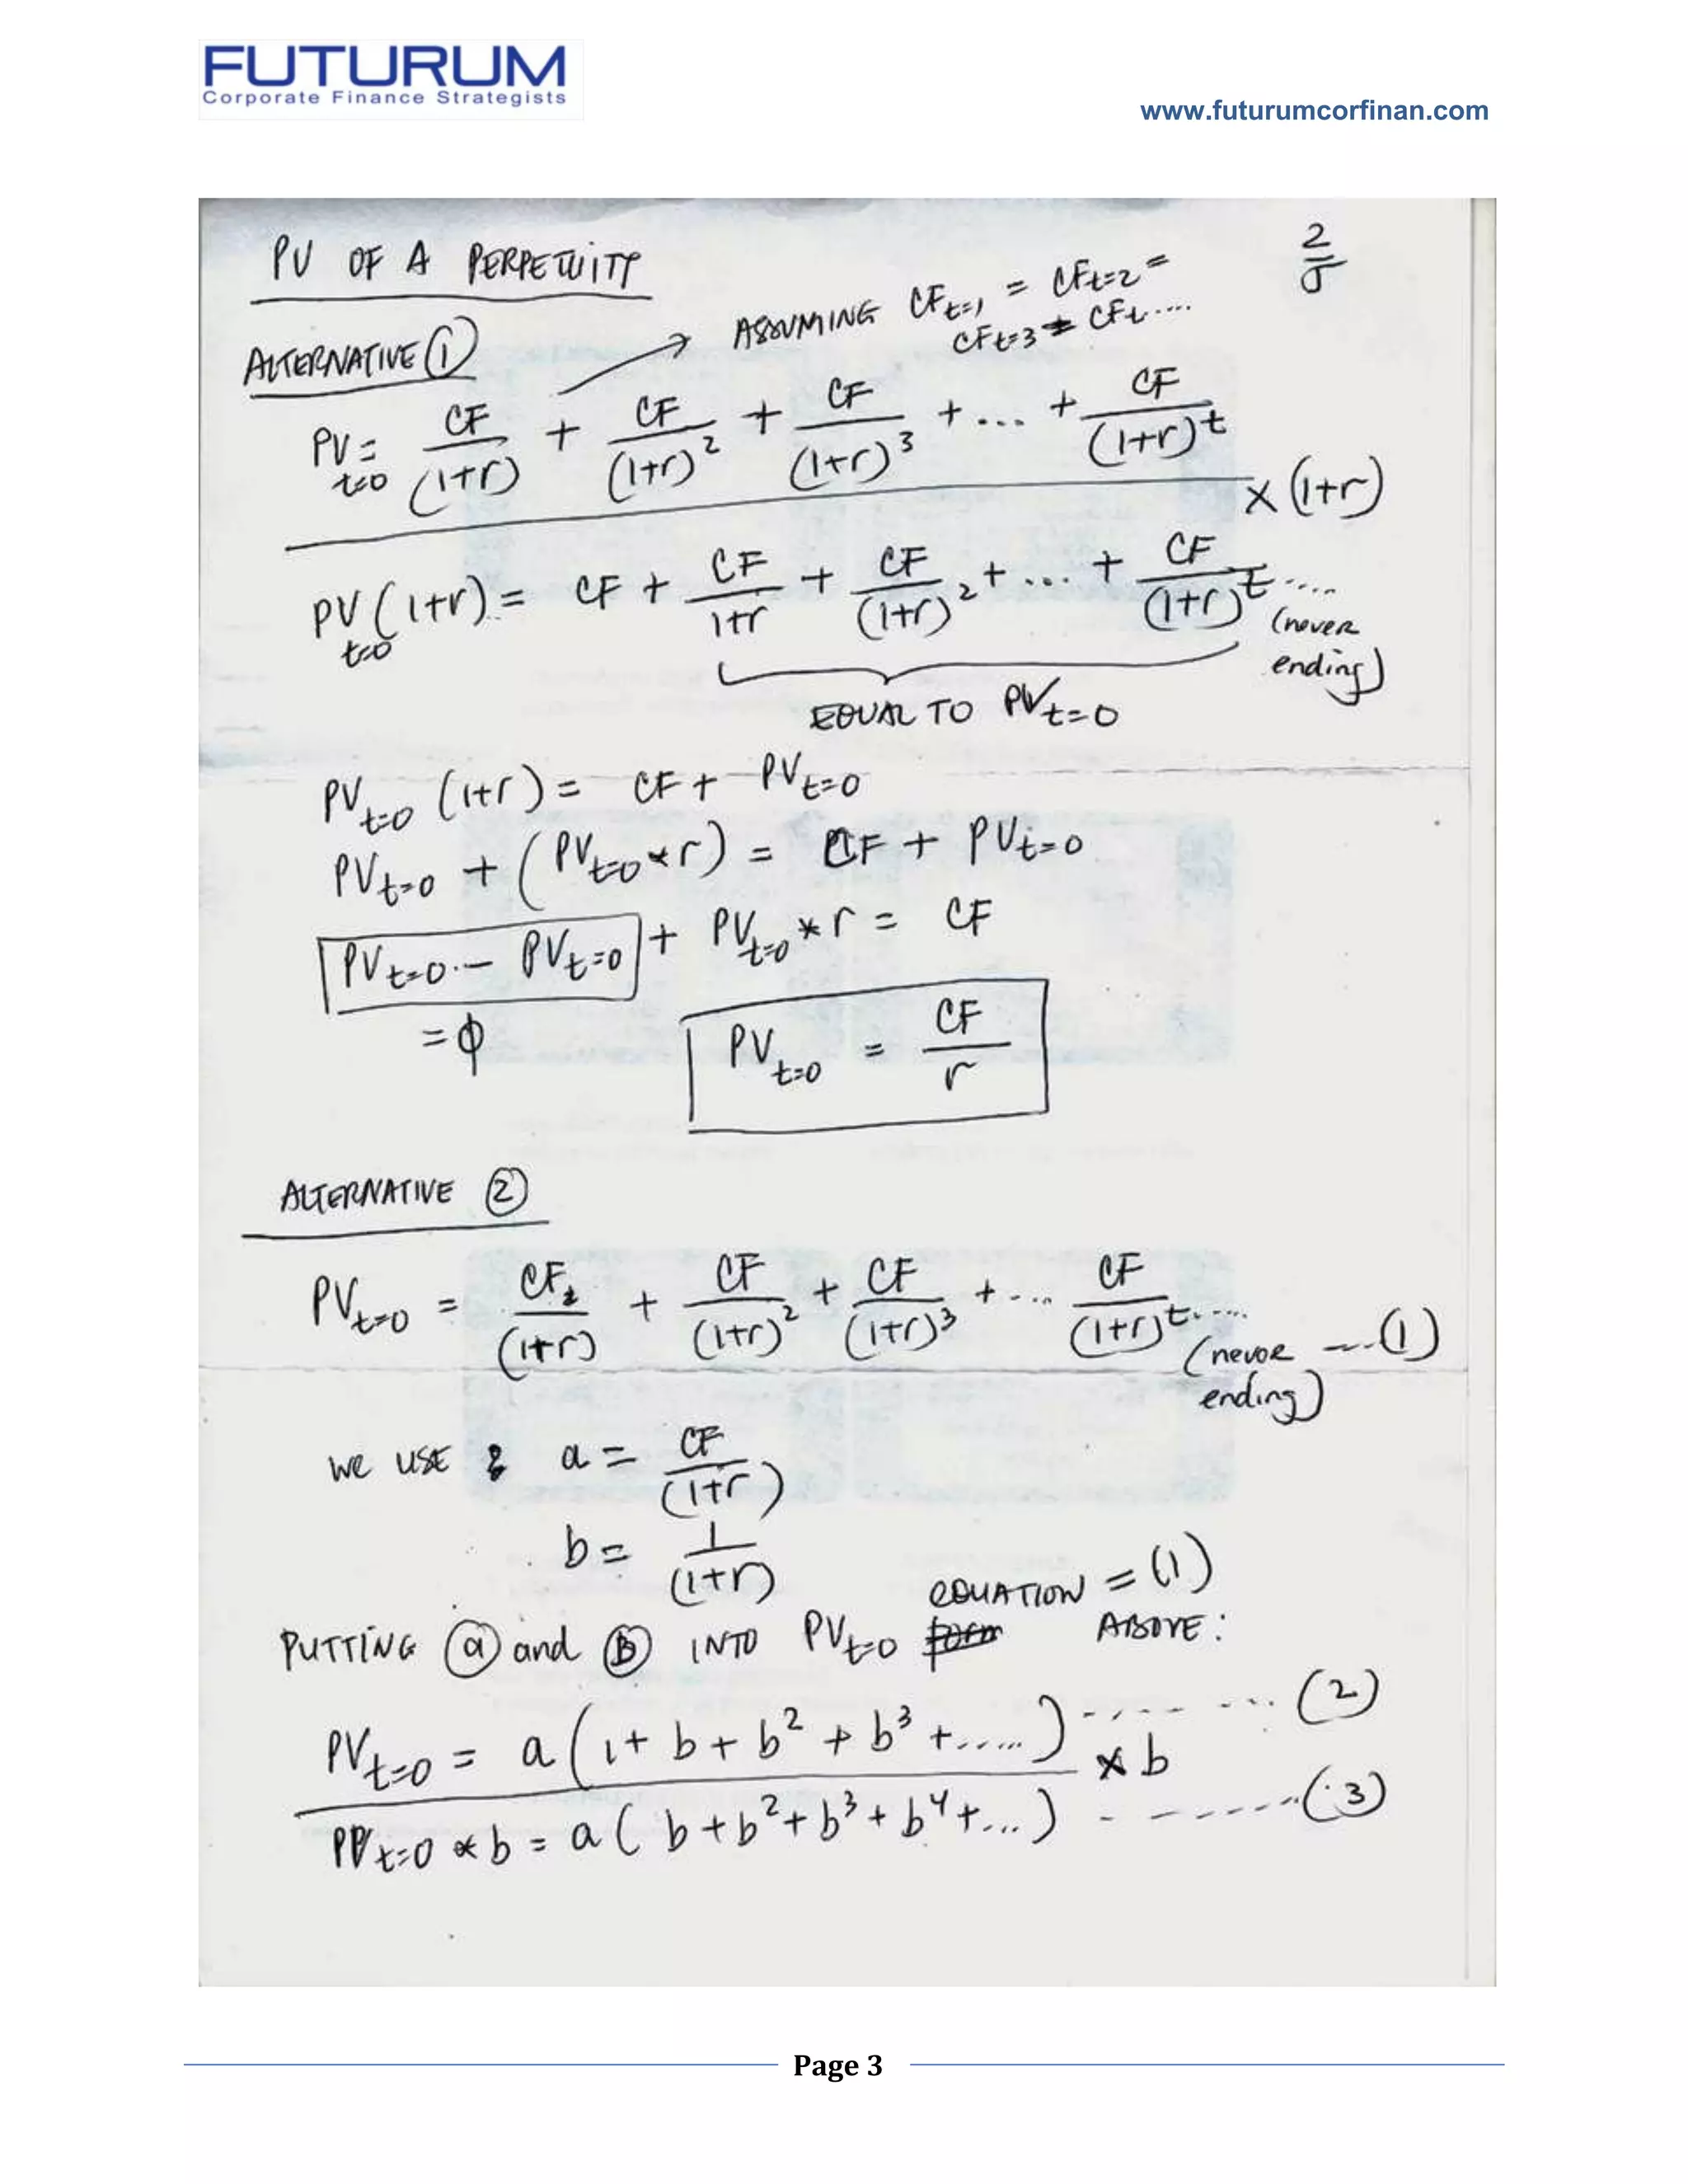 FUTURUM
Corporate Finance Strategists
www.futurumcorfinan.com
PV OF A PERPETUITY
2/5
ALTERNATIVE ①
→ ASSUMING CF_{t=1} = CF_{t=2} =
CF_{t=3} = CF_t ....
PV_{t=0} = CF/(1+r) + CF/(1+r)² + CF/(1+r)³ + ... + CF/(1+r)^t
× (1+r)
PV_{t=0} (1+r) = CF + CF/1+r + CF/(1+r)² + ... + CF/(1+r)^t ....
(never ending)
EQUAL TO PV_{t=0}
PV_{t=0} (1+r) = CF + PV_{t=0}
PV_{t=0} + (PV_{t=0} * r) = CF + PV_{t=0}
PV_{t=0} - PV_{t=0} + PV_{t=0} * r = CF
= φ
PV_{t=0} = CF/r
ALTERNATIVE ②
PV_{t=0} = CF/(1+r) + CF/(1+r)² + CF/(1+r)³ + .... CF/(1+r)^t ..... (never ending) ---- (1)
We USE : a = CF/(1+r)
b = 1/(1+r)
PUTTING ⓐ and Ⓑ INTO PV_{t=0} EQUATION = (1) ABOVE :
PV_{t=0} = a (1 + b + b² + b³ + ......) ------- (2)
× b
PV_{t=0} * b = a ( b + b² + b³ + b⁴ + ...) - ------- (3)
Page 3